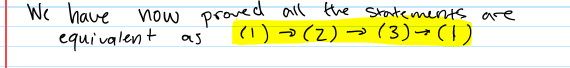 We have now proved all the statements are
equivalent as (1) → (2) → (3) → (1)